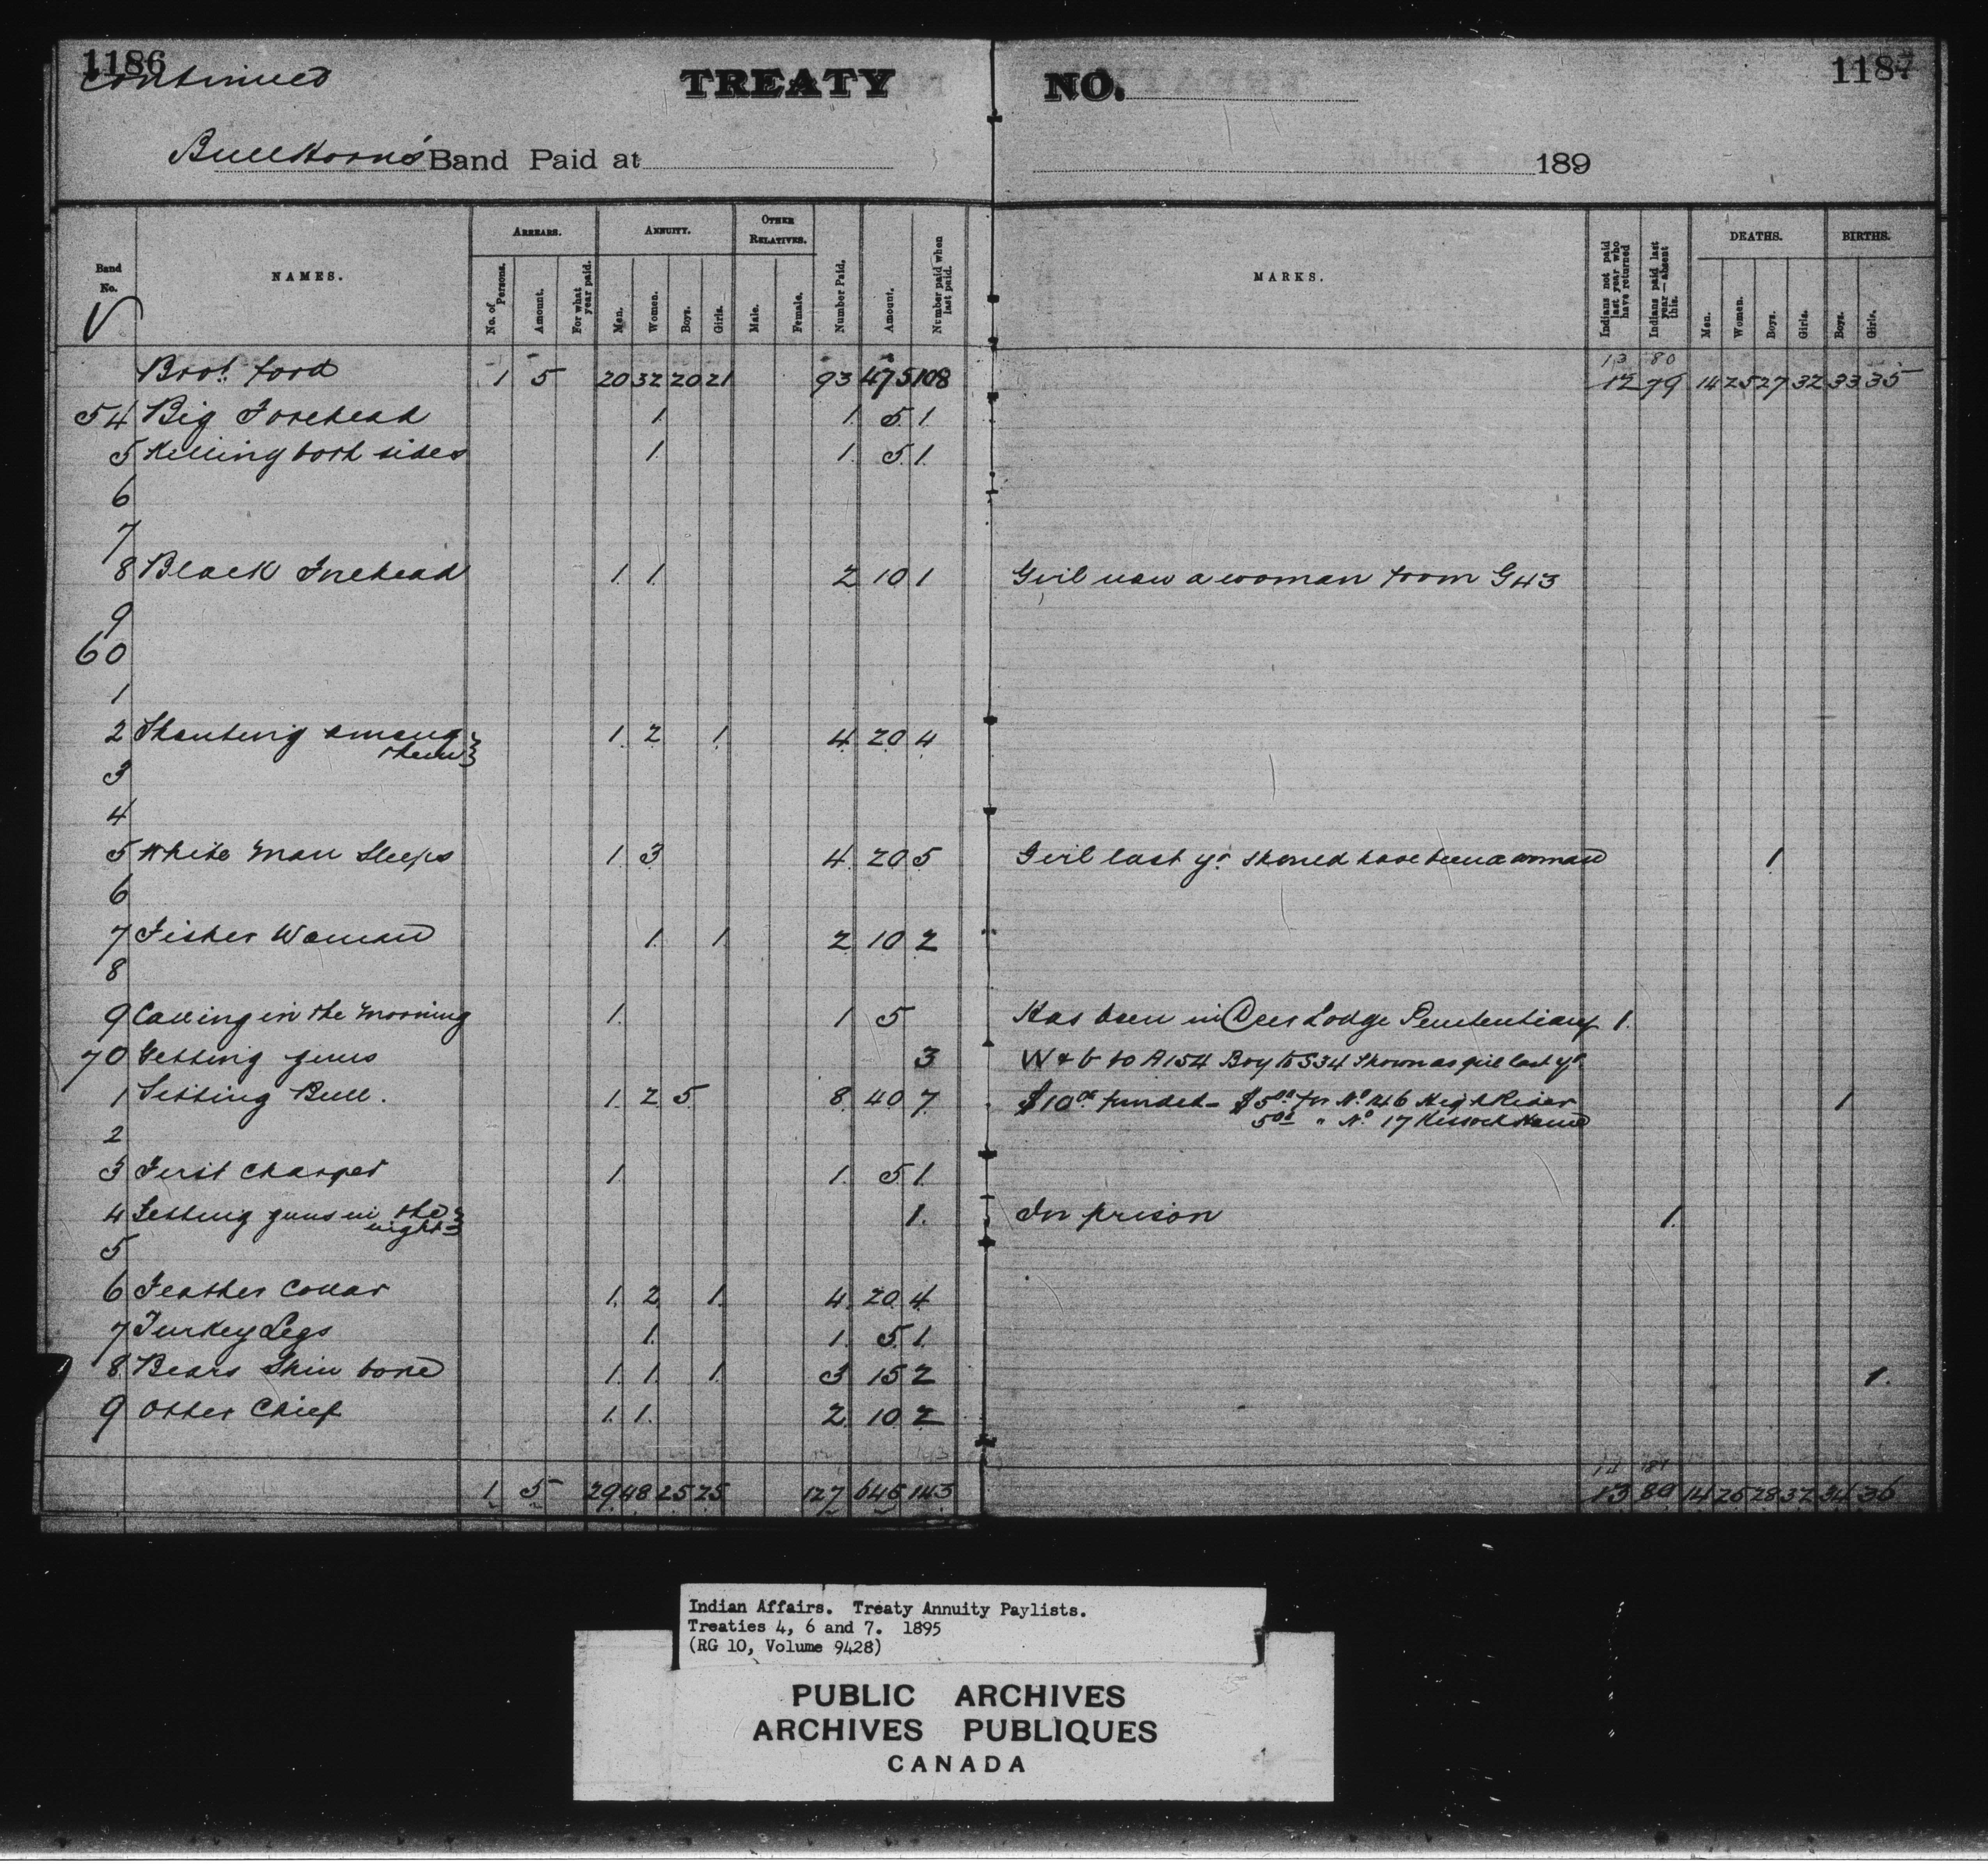 1186
Continued
TREATY NO.
1187
BullHorn's Band Paid at 189
Band No.
NAMES.
ARREARS.
No. of Persons.
Amount.
For what year paid.
ANNUITY.
Men.
Women.
Boys.
Girls.
OTHER RELATIVES.
Male.
Female.
Number Paid.
Amount.
Number paid when last paid.
MARKS.
Indians not paid last year who have returned
Indians paid last year — absent this.
DEATHS.
Men.
Women.
Boys.
Girls.
BIRTHS.
Boys.
Girls.
13 80
Brot. ford 1 5 20 32 20 21 93 475 108 12 79 14 25 27 32 33 35
54 Big Forehead 1 1 5 1
5 Killing both sides 1 1 5 1
6
7
8 Black Forehead 1 1 2 10 1 Girl now a woman from G43
9
60
1
2 Shouting among them 1 2 1 4 20 4
3
4
5 White Man Sleeps 1 3 4 20 5 Girl last yr. should have been a woman 1
6
7 Fisher Woman 1 1 2 10 2
8
9 Calling in the Morning 1 1 5 Has been in Deer Lodge Penitentiary 1
70 Getting guns 3 W & b to A154 Boy to S34 Shown as girl last yr.
1 Sitting Bull. 1 2 5 8 40 7 $10.00 funded - $5.00 for No. 146 High Rider 1
5.00 " No. 17
2
3 First Charger 1 1 5 1
4 Getting guns in the night 1 In prison 1
5
6 Feather Collar 1 2 1 4 20 4
7 Turkey Legs 1 1 5 1
8 Bears Shin bone 1 1 1 3 15 2 1
9 Otter Chief 1 1 2 10 2
14 81
1 5 29 48 25 25 127 645 143 13 80 14 25 28 32 34 36
Indian Affairs. Treaty Annuity Paylists.
Treaties 4, 6 and 7. 1895
(RG 10, Volume 9428)
PUBLIC ARCHIVES
ARCHIVES PUBLIQUES
CANADA